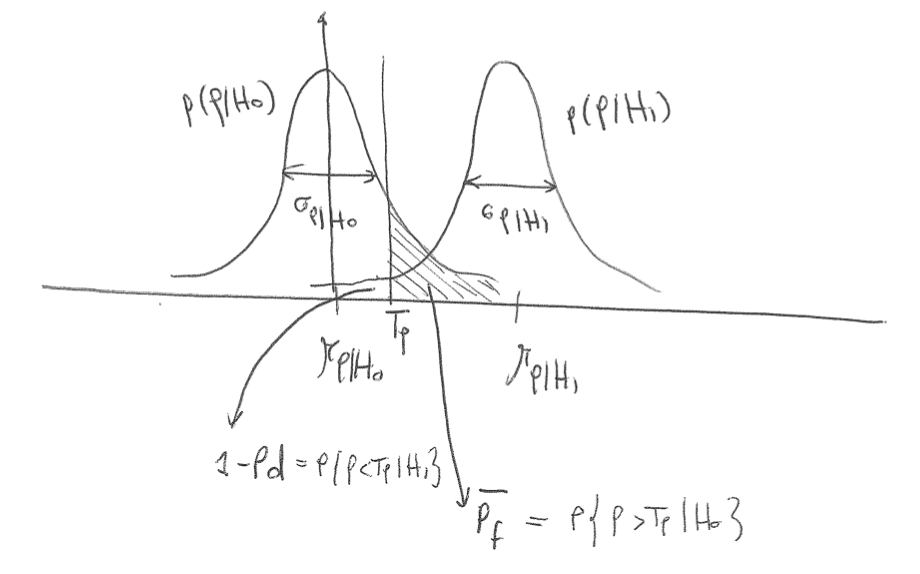 p(ρ|H₀)
p(ρ|H₁)
σρ|H₀
σρ|H₁
Tρ
μρ|H₀
μρ|H₁
1-Pd = P{ρ<Tρ|H₁}
P̅f = P{ρ>Tρ|H₀}